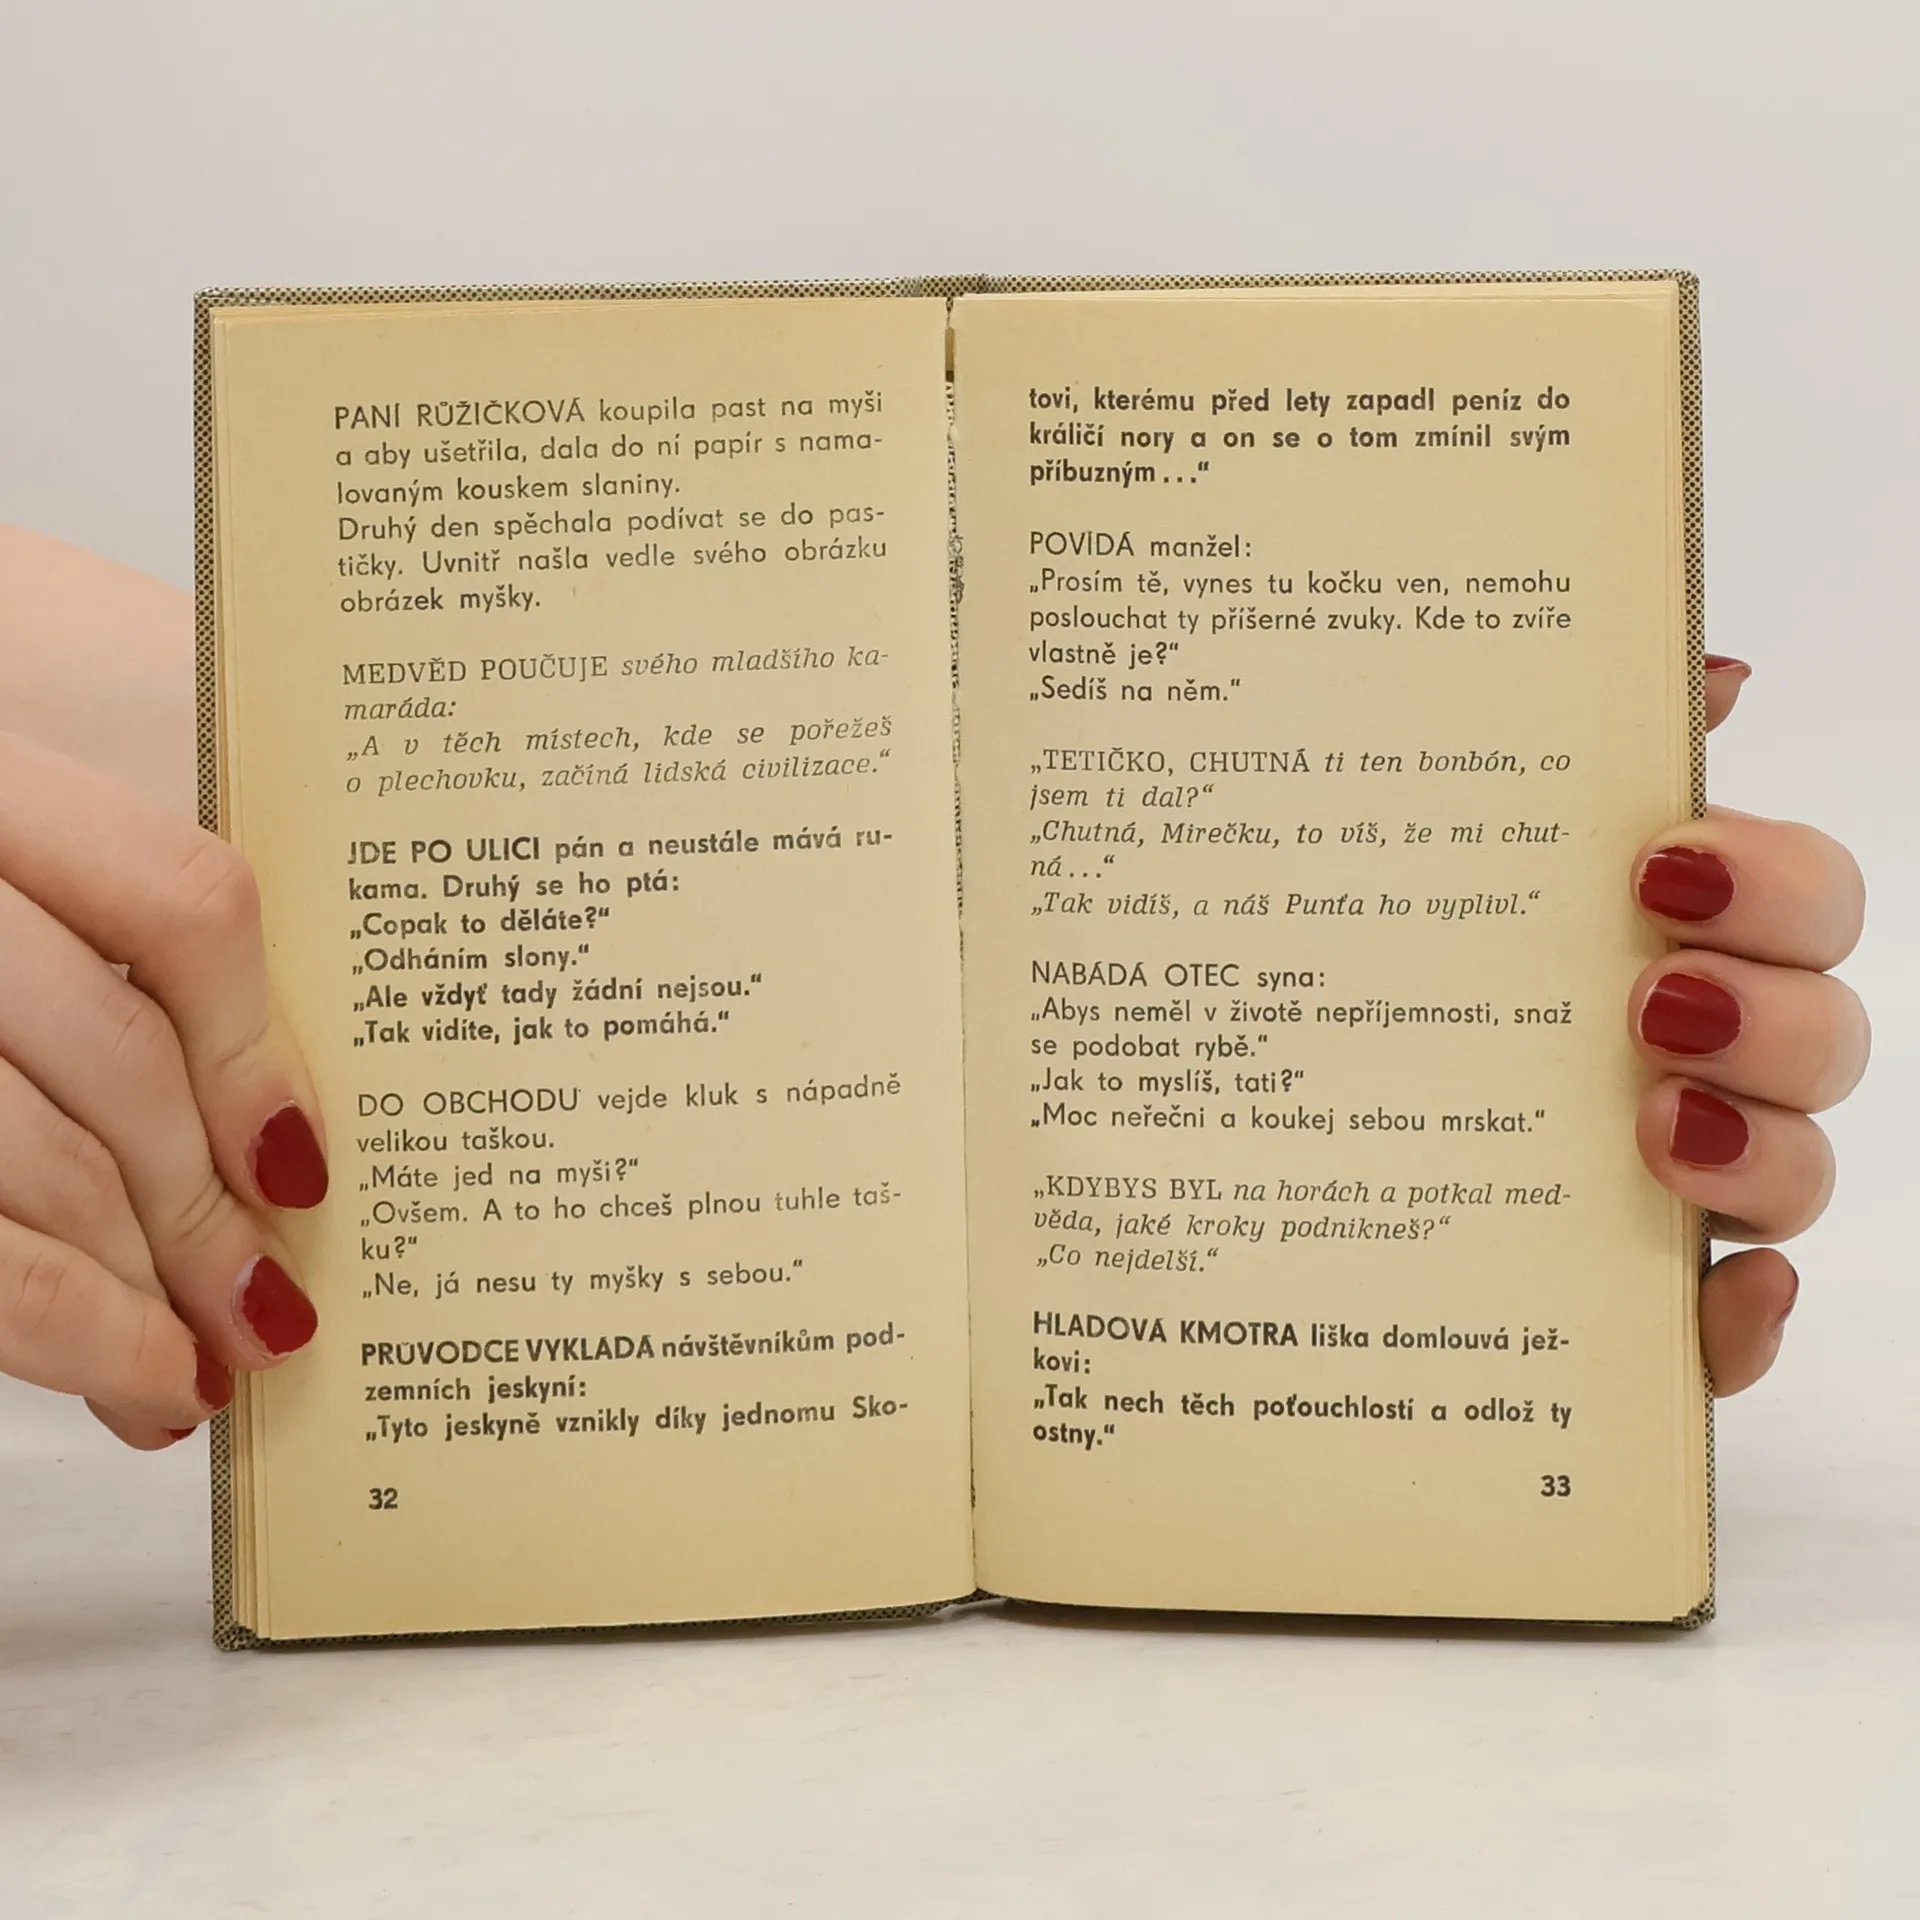 PANÍ RŮŽIČKOVÁ koupila past na myši
a aby ušetřila, dala do ní papír s nama-
lovaným kouskem slaniny.
Druhý den spěchala podívat se do pas-
tičky. Uvnitř našla vedle svého obrázku
obrázek myšky.
MEDVĚD POUČUJE svého mladšího ka-
maráda:
„A v těch místech, kde se pořežeš
o plechovku, začíná lidská civilizace.“
JDE PO ULICI pán a neustále mává ru-
kama. Druhý se ho ptá:
„Copak to děláte?“
„Odháním slony.“
„Ale vždyť tady žádní nejsou.“
„Tak vidíte, jak to pomáhá.“
DO OBCHODU vejde kluk s nápadně
velikou taškou.
„Máte jed na myši?“
„Ovšem. A to ho chceš plnou tuhle taš-
ku?“
„Ne, já nesu ty myšky s sebou.“
PRŮVODCE VYKLÁDÁ návštěvníkům pod-
zemních jeskyní:
„Tyto jeskyně vznikly díky jednomu Sko-
32
tovi, kterému před lety zapadl peníz do
králičí nory a on se o tom zmínil svým
příbuzným...“
POVÍDÁ manžel:
„Prosím tě, vynes tu kočku ven, nemohu
poslouchat ty příšerné zvuky. Kde to zvíře
vlastně je?“
„Sedíš na něm.“
„TETIČKO, CHUTNÁ ti ten bonbón, co
jsem ti dal?“
„Chutná, Mirečku, to víš, že mi chut-
ná...“
„Tak vidíš, a náš Punťa ho vyplivl.“
NABÁDÁ OTEC syna:
„Abys neměl v životě nepříjemnosti, snaž
se podobat rybě.“
„Jak to myslíš, tati?“
„Moc neřečni a koukej sebou mrskat.“
„KDYBYS BYL na horách a potkal med-
věda, jaké kroky podnikneš?“
„Co nejdelší.“
HLADOVÁ KMOTRA liška domlouvá jež-
kovi:
„Tak nech těch poťouchlostí a odlož ty
ostny.“
33